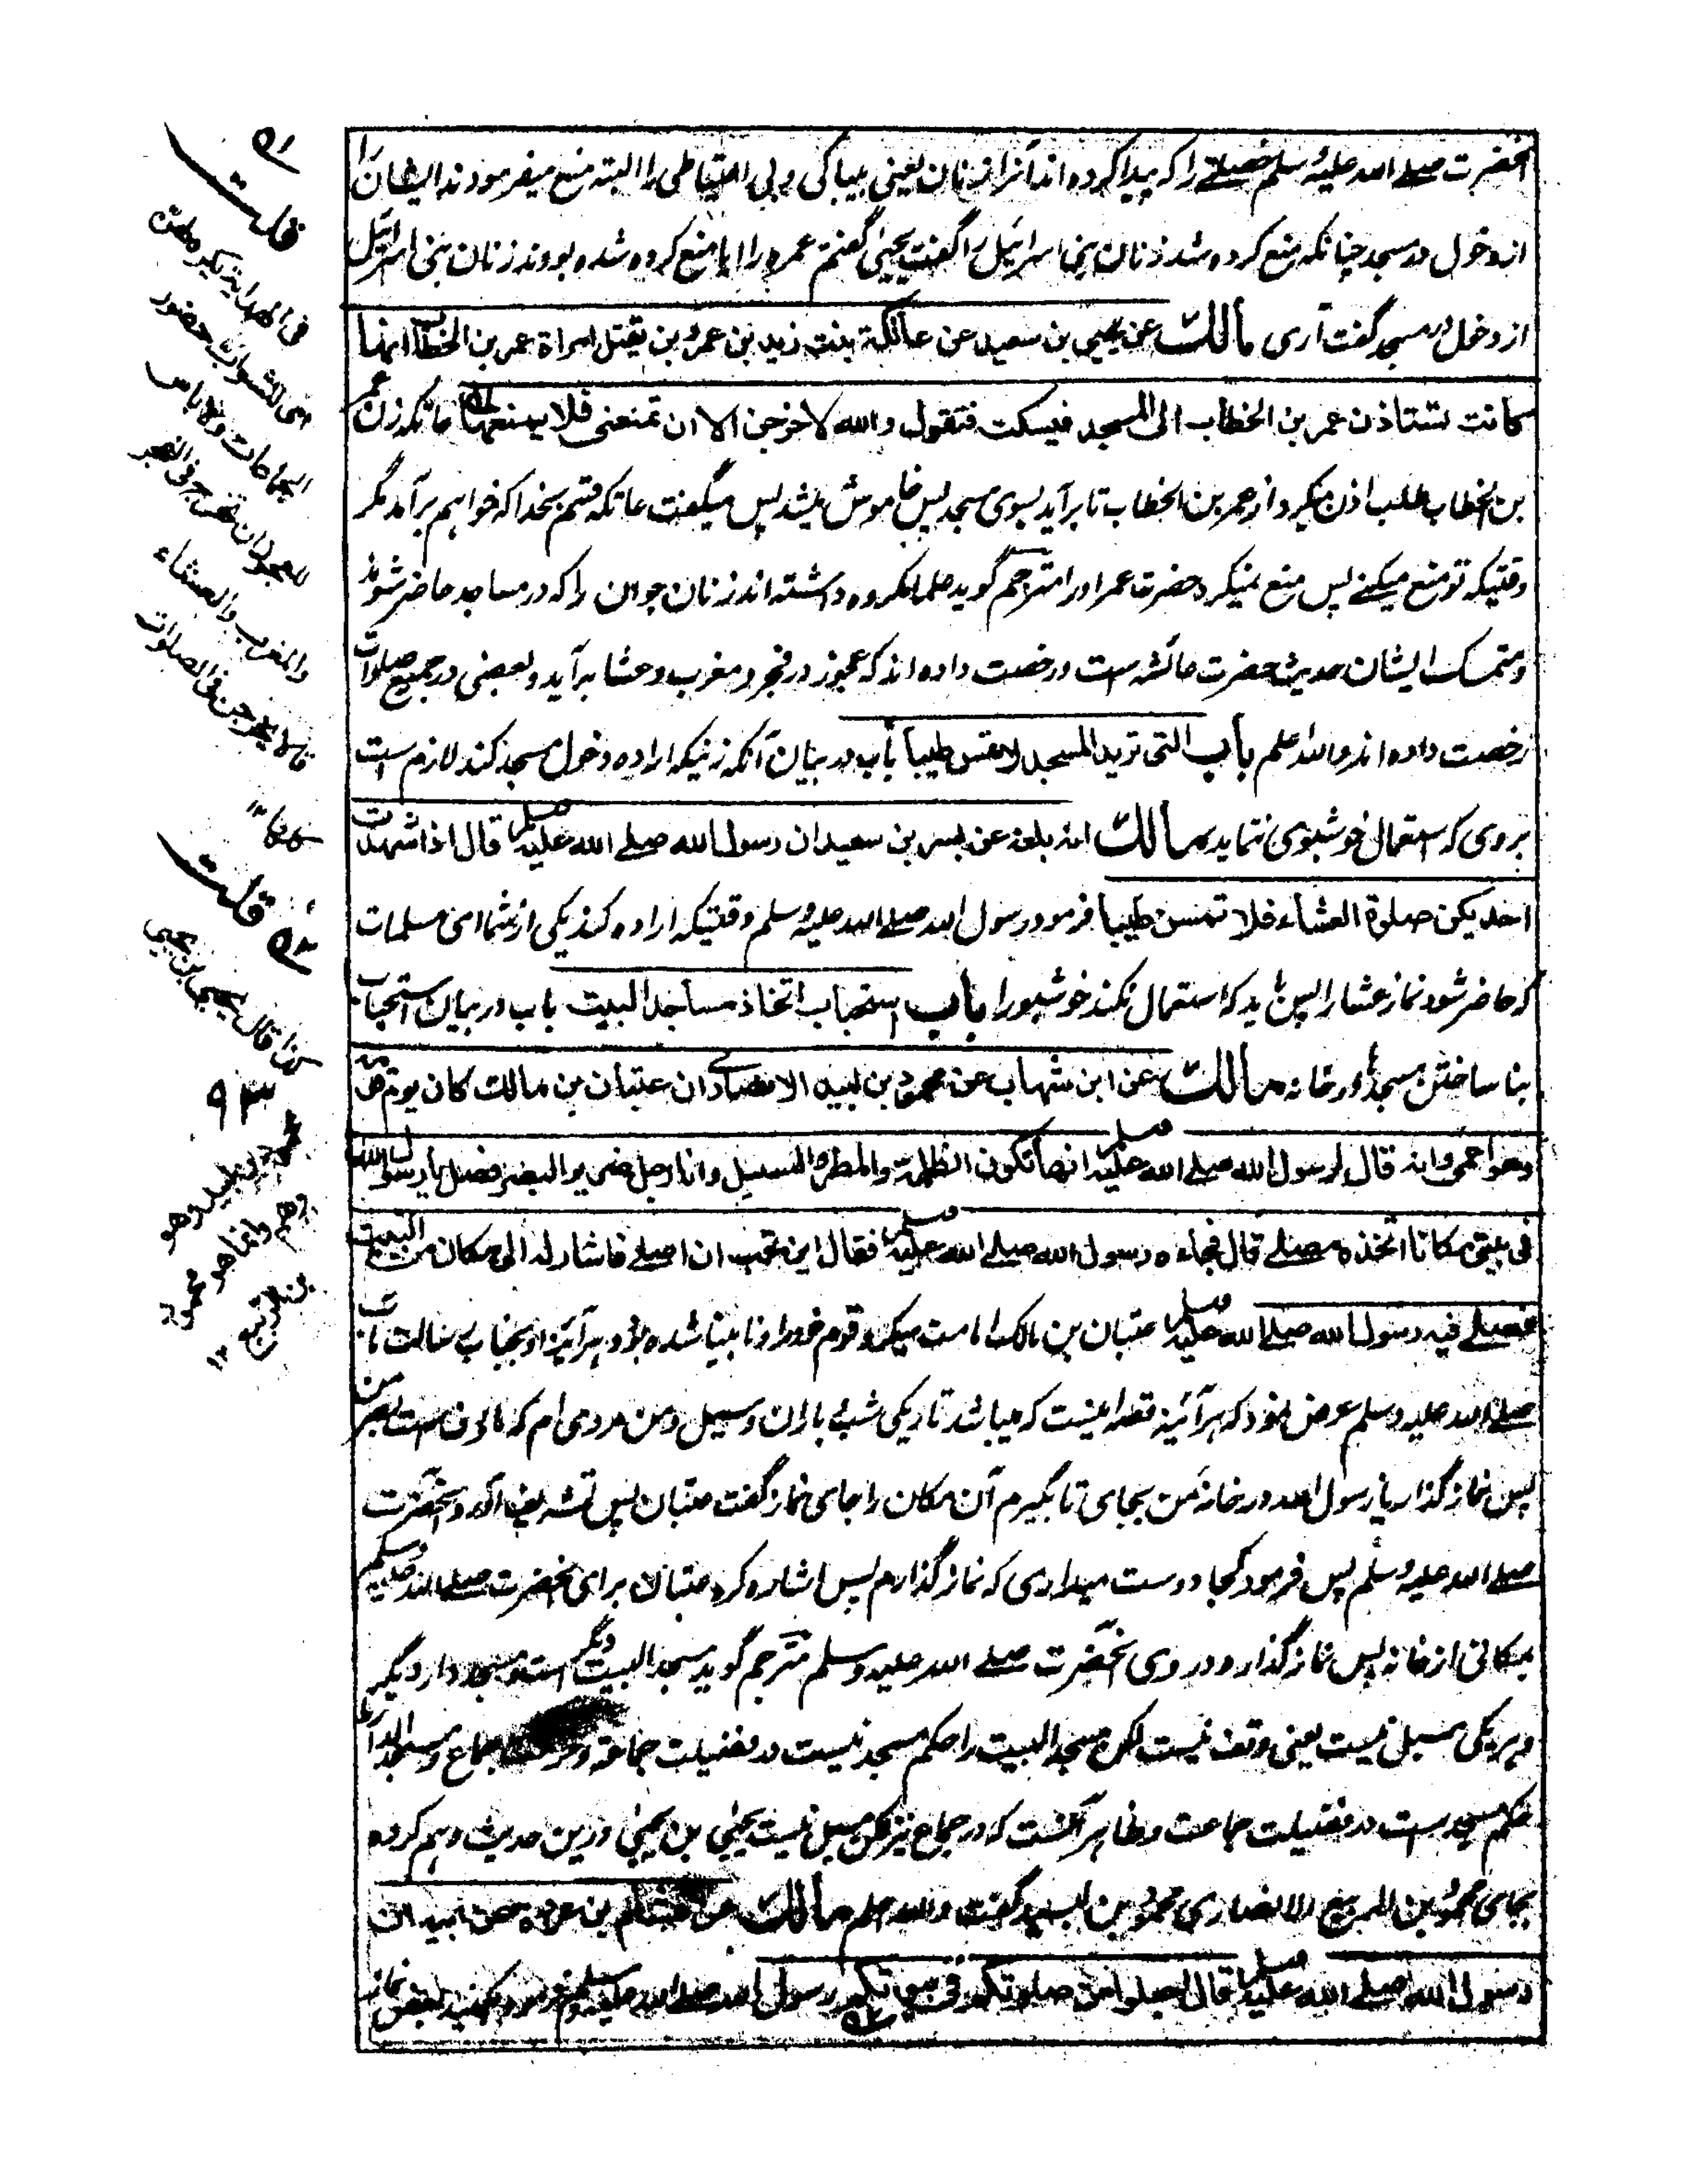 آنحضرت صلے الله علیه وسلم خصلتے را که پیدا کرده اند آنرا زنان یعنی بیباکی و بی احتیاطی را البته منع میفرمودند ایشان را
از دخول در مسجد چنانکه منع کرده شد زنان بنی اسرائیل را گفت یحیی گفتم عمره را ایا منع کرده شده بودند زنان بنی اسرائیل
از دخول در مسجد گفت آری مالك عن یحیی بن سعید عن عاتکة بنت زید بن عمرو بن نفیل امراة عمر بن الخطاب انها
کانت تستاذن عمر بن الخطاب الی المسجد فیسکت فتقول والله لاخرجن الا ان تمنعنی فلا یمنعها عاتکه زن عمر
بن الخطاب طلب اذن میکرد از عمر بن الخطاب تا برآید بسوی مسجد پس خاموش میشد پس میگفت عاتکه قسم بخدا که خواهم برآمد مگر
وقتیکه تو منع میکنے پس منع نمیکرد حضرت عمر او را مترجم گوید علما مکروه داشته اند زنان جوان را که در مساجد حاضر شوند
و متمسک ایشان حدیث حضرت عائشه است و رخصت داده اند که عجوز در فجر و مغرب و عشا برآید و بعضی در جمیع صلوات
رخصت داده اند والله اعلم باب التی ترید المسجد لا تمس طیبا باب در بیان آنکه زنیکه اراده دخول مسجد کند لازم است
بروی که استعمال خوشبوی ننماید مالك انه بلغه عن بسر بن سعید ان رسول الله صلے الله علیه وسلم قال اذا شهدت
احدیکن صلوة العشاء فلا تمسن طیبا فرمود رسول الله صلے الله علیه وسلم وقتیکه اراده کند یکی از شما ای مسلمات
که حاضر شود نماز عشا را پس باید که استعمال نکند خوشبو را باب استحباب اتخاذ مساجد البیت باب در بیان استحباب
بنا ساختن مسجد در خانه مالك عن ابن شهاب عن محمود بن لبید الانصاری ان عتبان بن مالك کان یؤم قومه
وهو اعمی وانه قال لرسول الله صلے الله علیه وسلم انها تکون الظلمة والمطر والسیل وانا رجل ضریر البصر فصل یا رسول الله
فی بیتی مکانا اتخذه مصلے قال فجاءه رسول الله صلے الله علیه وسلم فقال این تحب ان اصلے فاشار له الی مکان من البیت
فصلے فیه رسول الله صلے الله علیه وسلم عتبان بن مالک امامت میکرد قوم خود را و نابینا شده بود هرآئینه او بجناب رسالت مآب
صلے الله علیه وسلم عرض نمود که هرآئینه قصه اینست که میباشد تاریکی شب و باران و سیل و من مردی ام که ماؤف است بصر من
پس نماز گذار یا رسول الله در خانۀ من بجای تا بگیرم آن مکان را جای نماز گفت عتبان پس تشریف آورد آنحضرت
صلے الله علیه وسلم پس فرمود کجا دوست میداری که نماز گذارم پس اشاره کرد عتبان برای آنحضرت صلے الله علیه وسلم
بمکانی از خانه پس نماز گذارد در وی آنحضرت صلے الله علیه وسلم مترجم گوید مسجد البیت دیگر است و مسجد دار دیگر
و هر یکی مسبل نیست یعنی وقف نیست لکن مسجد البیت را حکم مسجد نیست در فضیلت جماعة و جماع و مسجد الدار را
حکم مسجد است در فضیلت جماعت و ظاهر آنست که در جماع نیز لکن مسبل نیست یحیی بن یحیی درین حدیث وهم کرده
بجای محمود بن الربیع الانصاری محمود بن لبید گفت والله اعلم مالك عن هشام بن عروه عن ابیه ان
رسول الله صلے الله علیه وسلم قال اجعلوا من صلوتکم فی بیوتکم رسول الله صلے الله علیه وسلم فرمود بکنید بعض نماز
قلت
فی الهدایة یکره لهن
ای للشواب حضور
الجماعات ولا باس
للعجوز ان تخرج فی الفجر
والمغرب والعشاء
یخرجن فی الصلوات
کلها ١٢
قلت
هکذا قال یحیی بن یحیی
محمود بن لبید وهو
وهم وانما هو محمود
بن الربیع ١٢